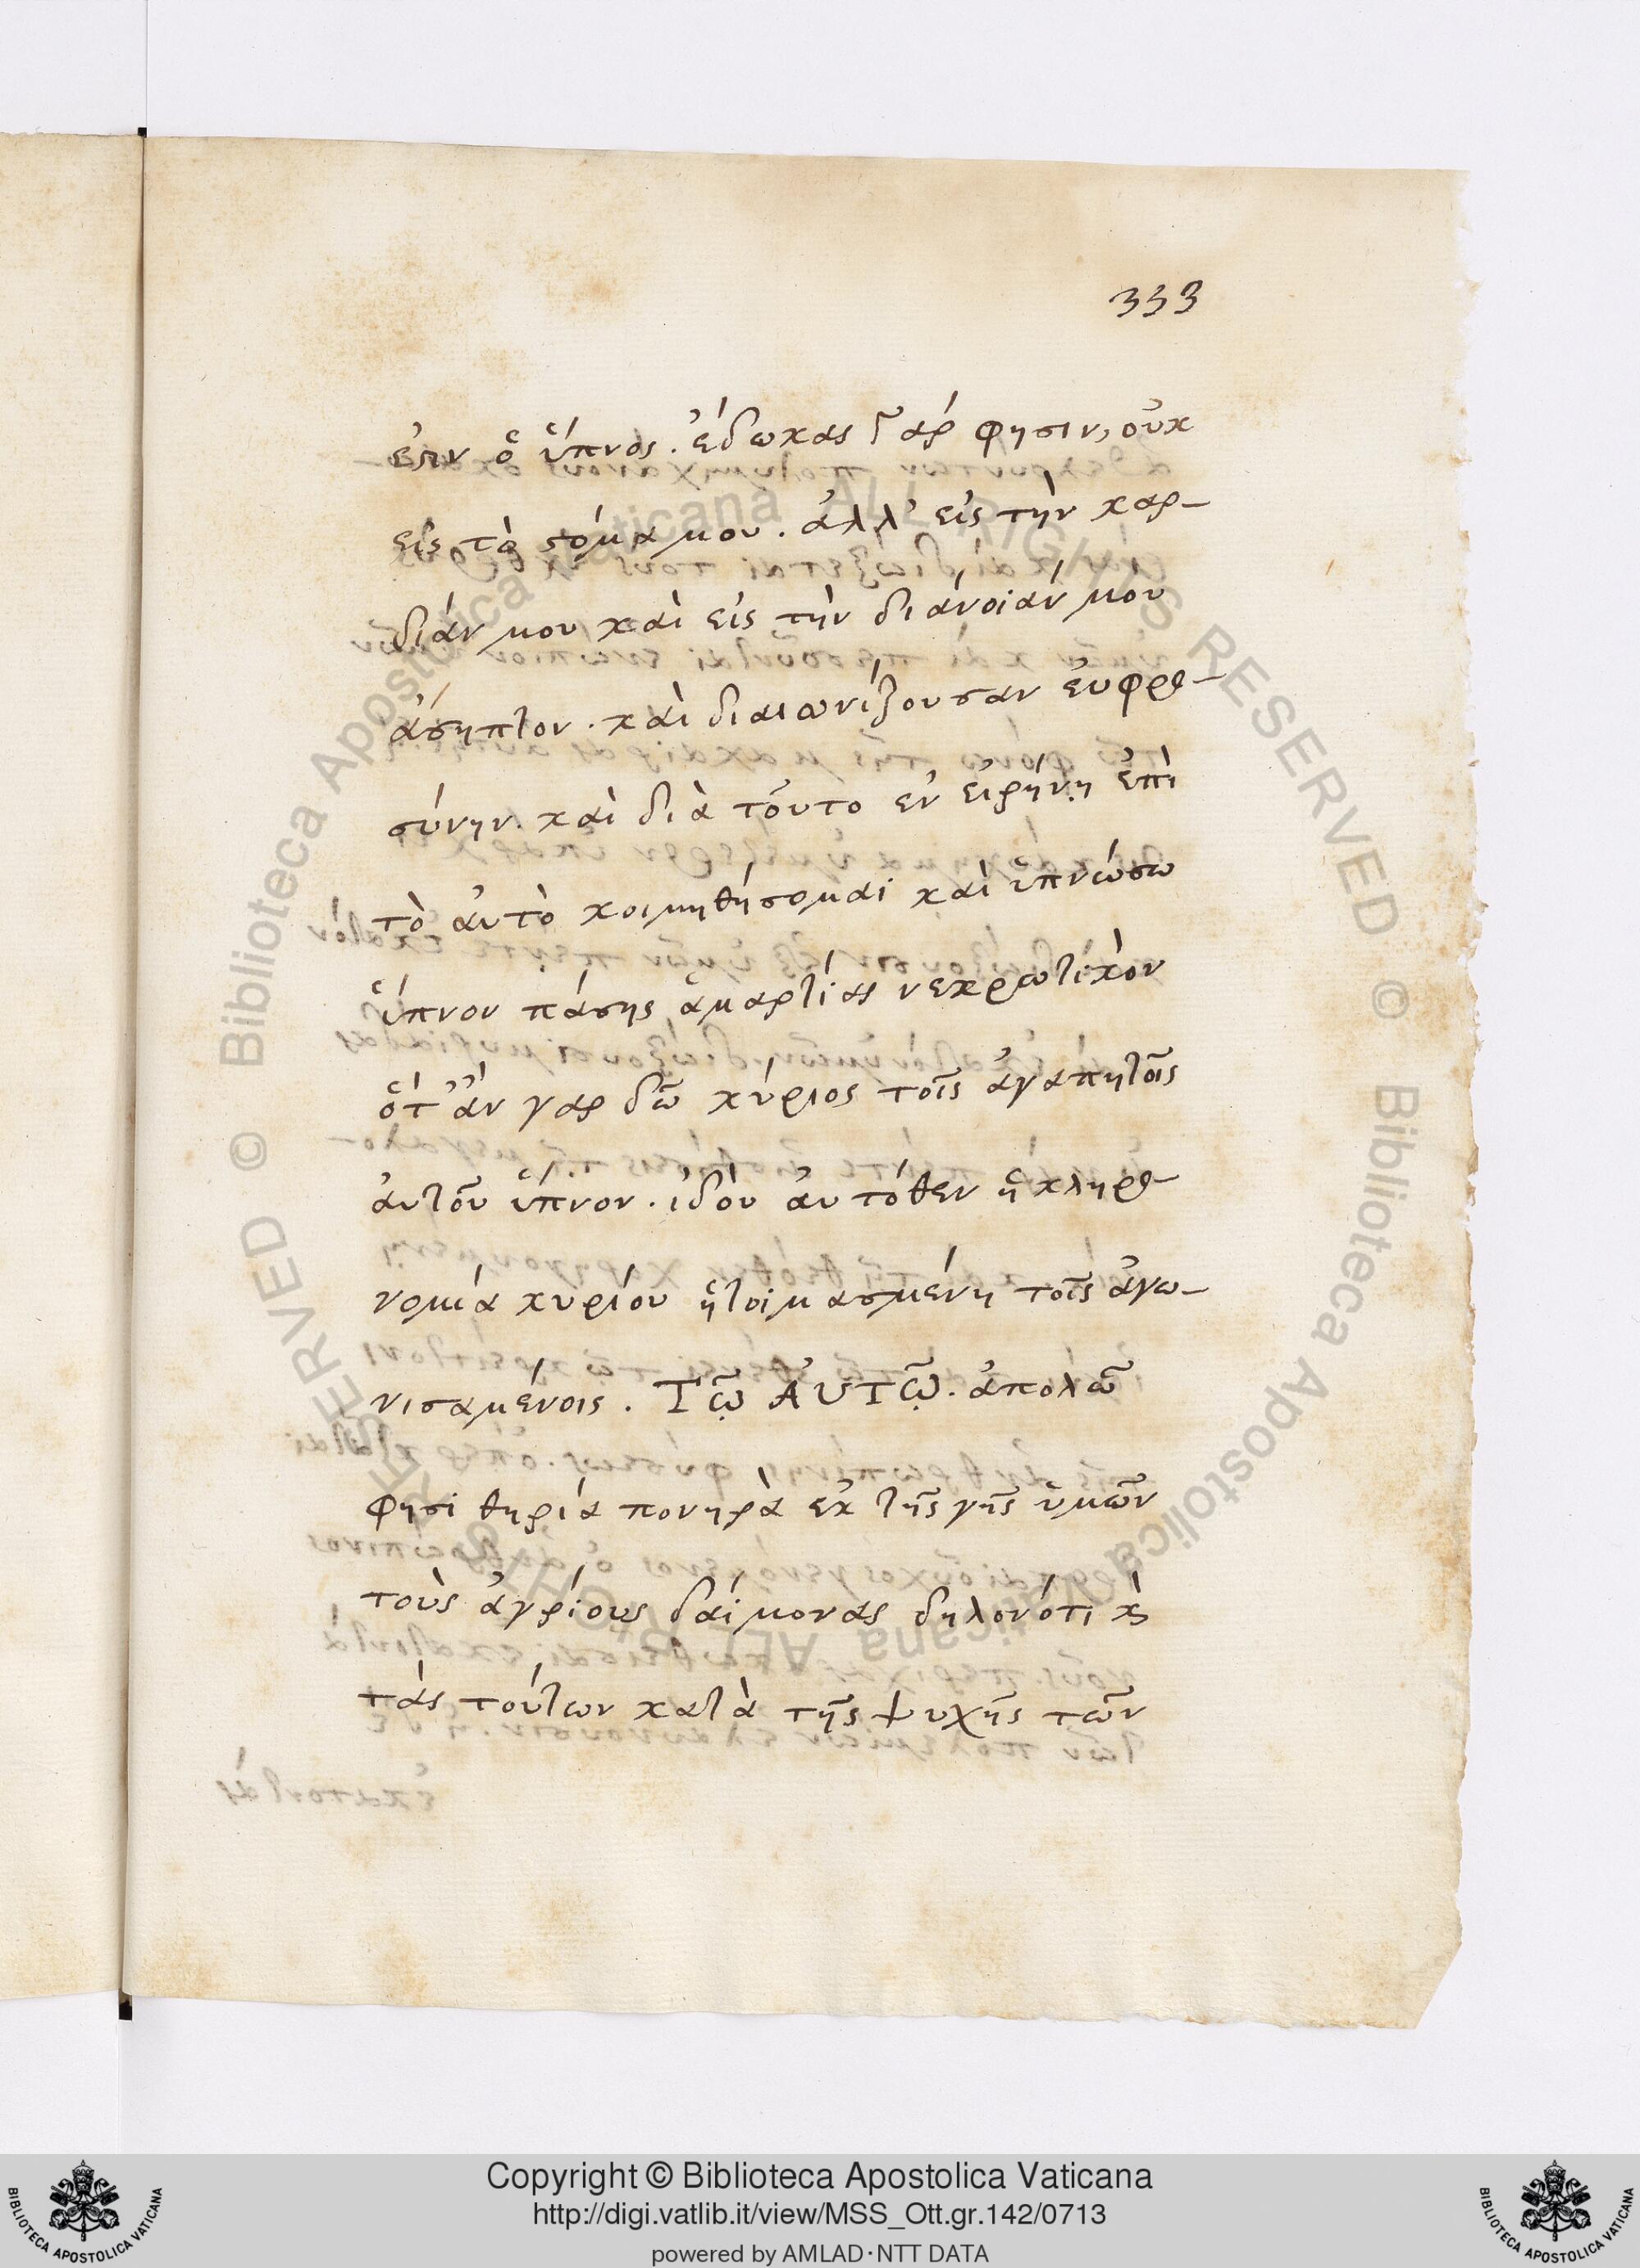 333
ἐστιν ὁ ὕπνος. ἔδωκας γάρ φησιν, οὐκ
εἰς τὸ στόμα μου. ἀλλ' εἰς τὴν καρ-
δίαν μου καὶ εἰς τὴν διάνοιάν μου
ἄσηπτον. καὶ διαιωνίζουσαν ἐυφρο-
σύνην. καὶ διὰ τοῦτο ἐν εἰρήνῃ ἐπὶ
τὸ ἀυτὸ κοιμηθήσομαι καὶ ὑπνώσω
ὕπνον πάσης ἁμαρτίας νεκρωτικὸν
ὅτ' ἂν γαρ δῶ κύριος τοῖς ἀγαπητοῖς
ἀυτοῦ ὕπνον. ἰδοὺ ἀυτόθεν ἡ κληρο-
νομία κυρίου ἡτοιμασμένη τοῖς ἀγω-
νισαμένοις. Τῷ ΑὐΤῷ. ἀπολῶ
φησὶ θηρία πονηρὰ ἐκ τῆς γῆς ὑμῶν
τοὺς ἀγρίους δαίμονας δηλονότι ϗ
τὰς τούτων κατὰ τῆς ψυχῆς τῶν
Copyright © Biblioteca Apostolica Vaticana
http://digi.vatlib.it/view/MSS_Ott.gr.142/0713
powered by AMLAD·NTT DATA
BIBLIOTECA APOSTOLICA VATICANA
BIBLIOTECA APOSTOLICA VATICANA